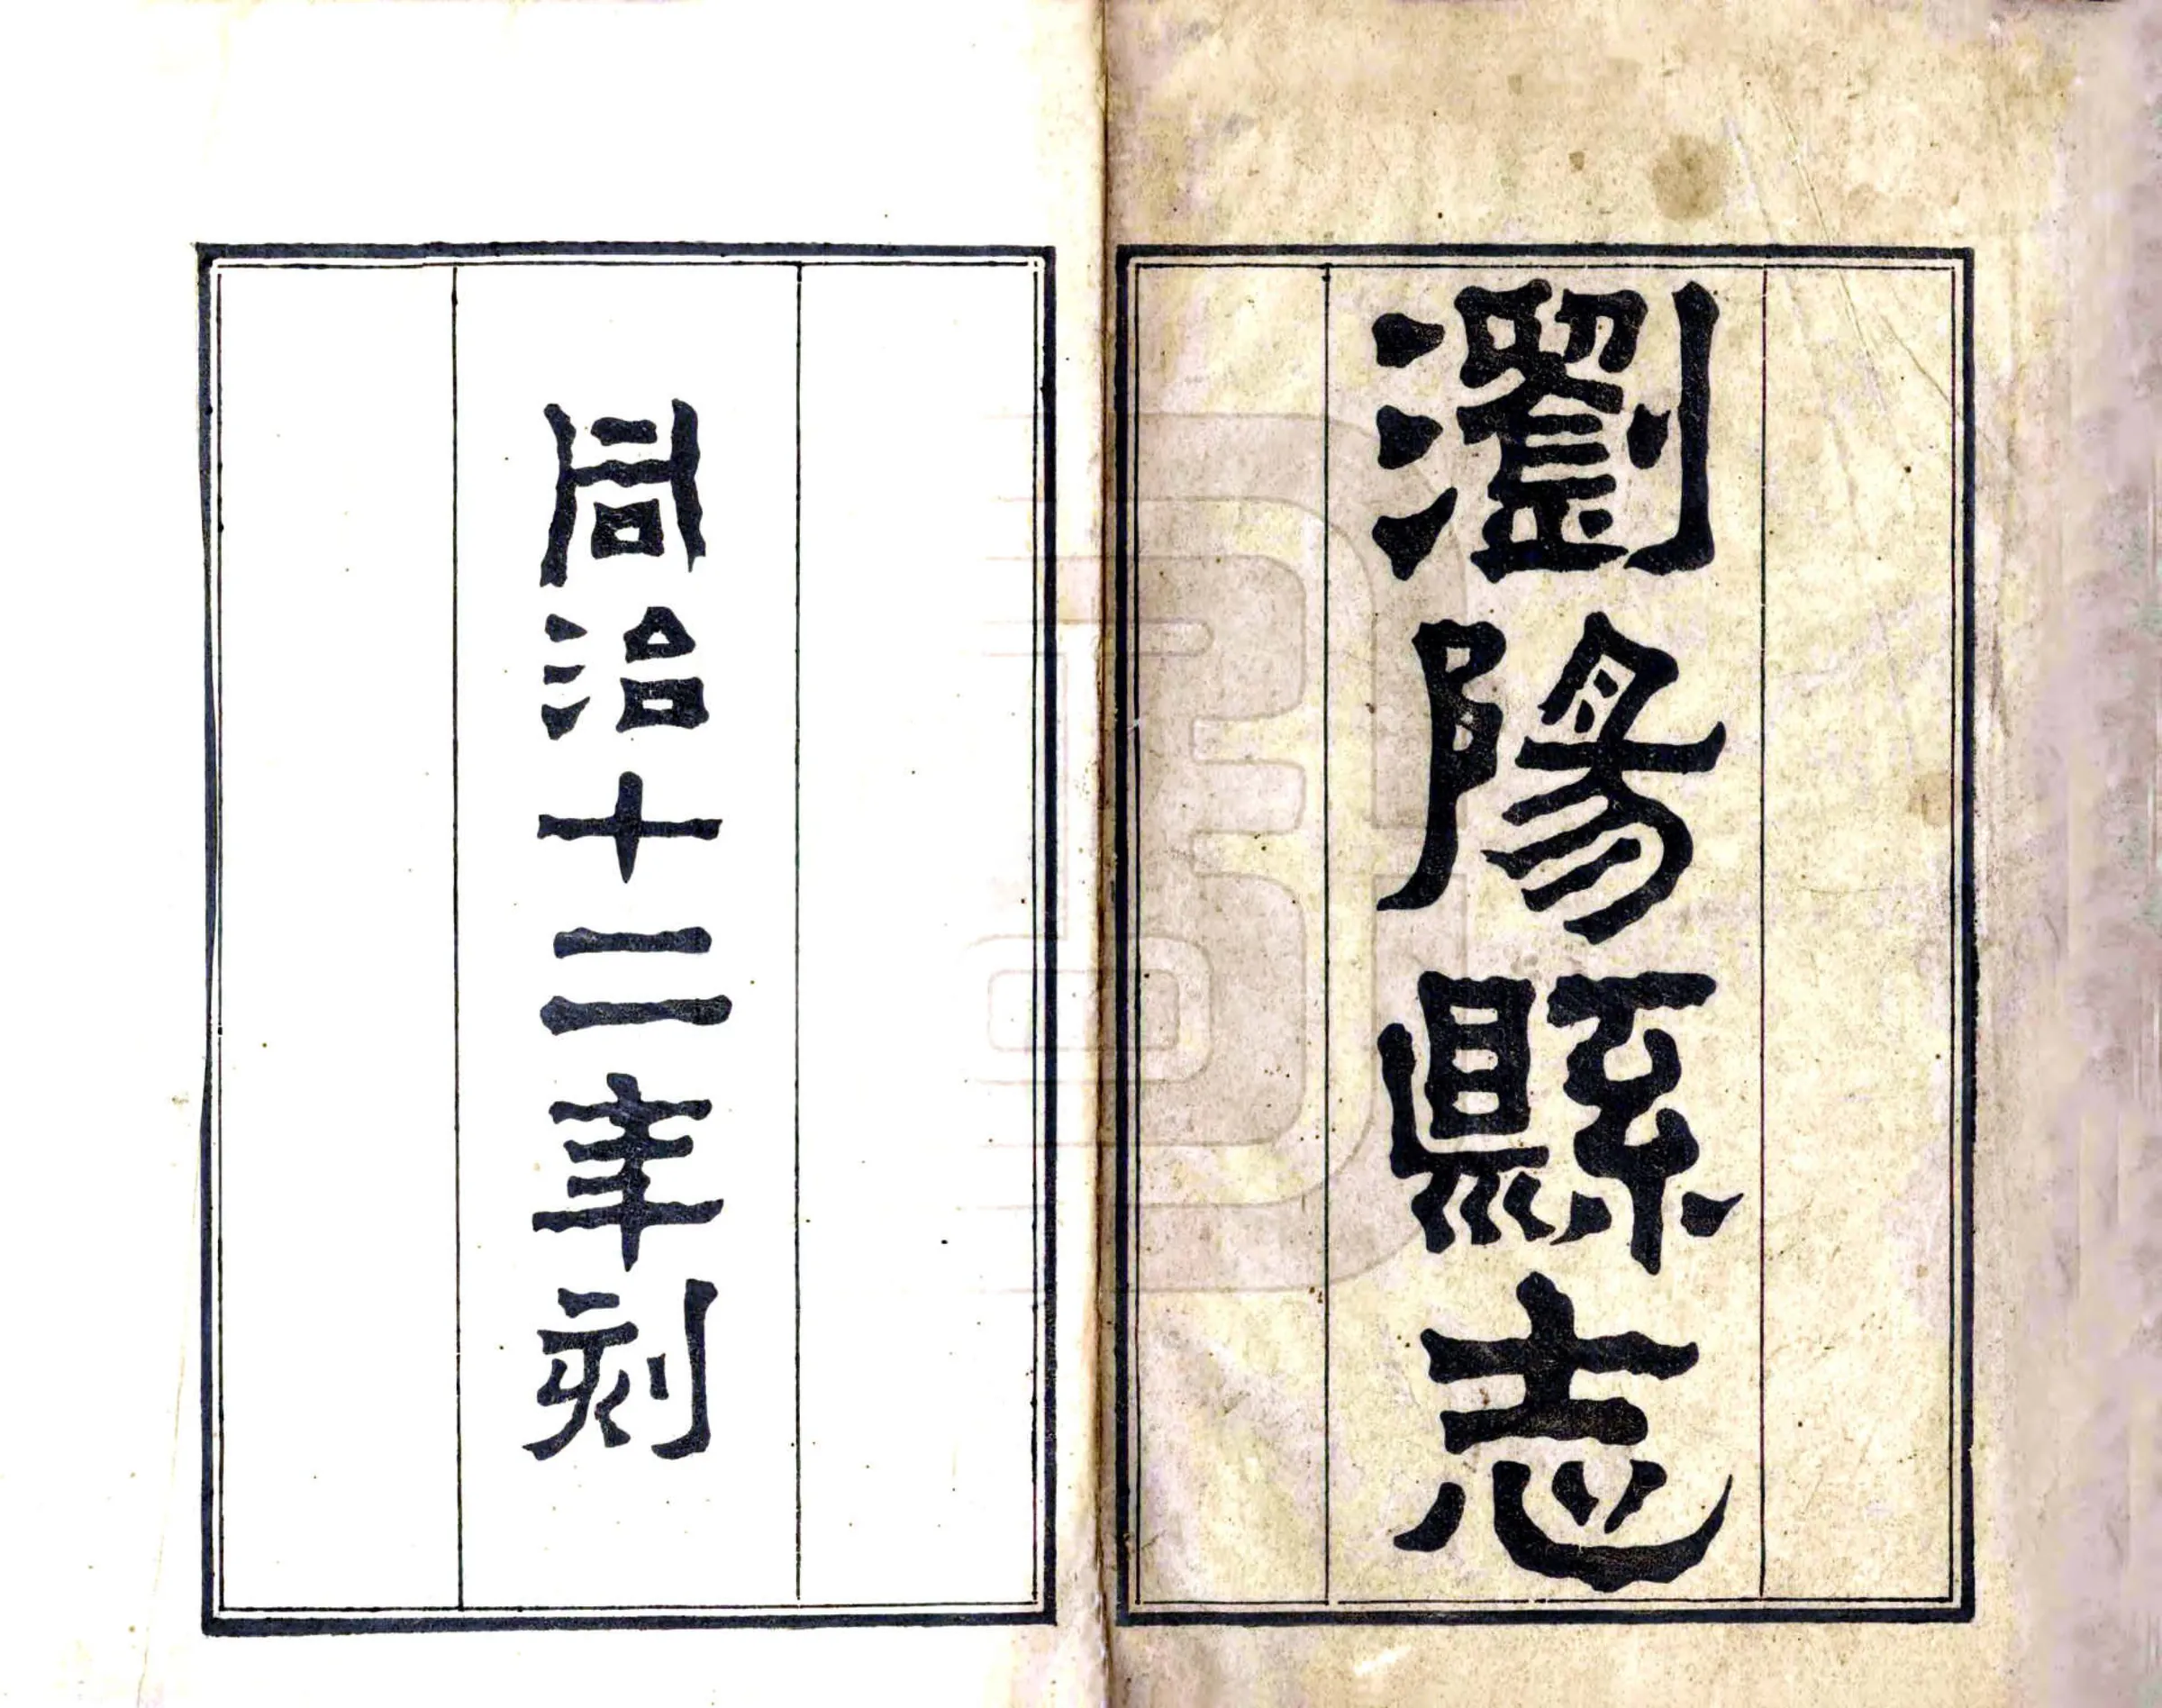 瀏陽縣志
同治十二年刻